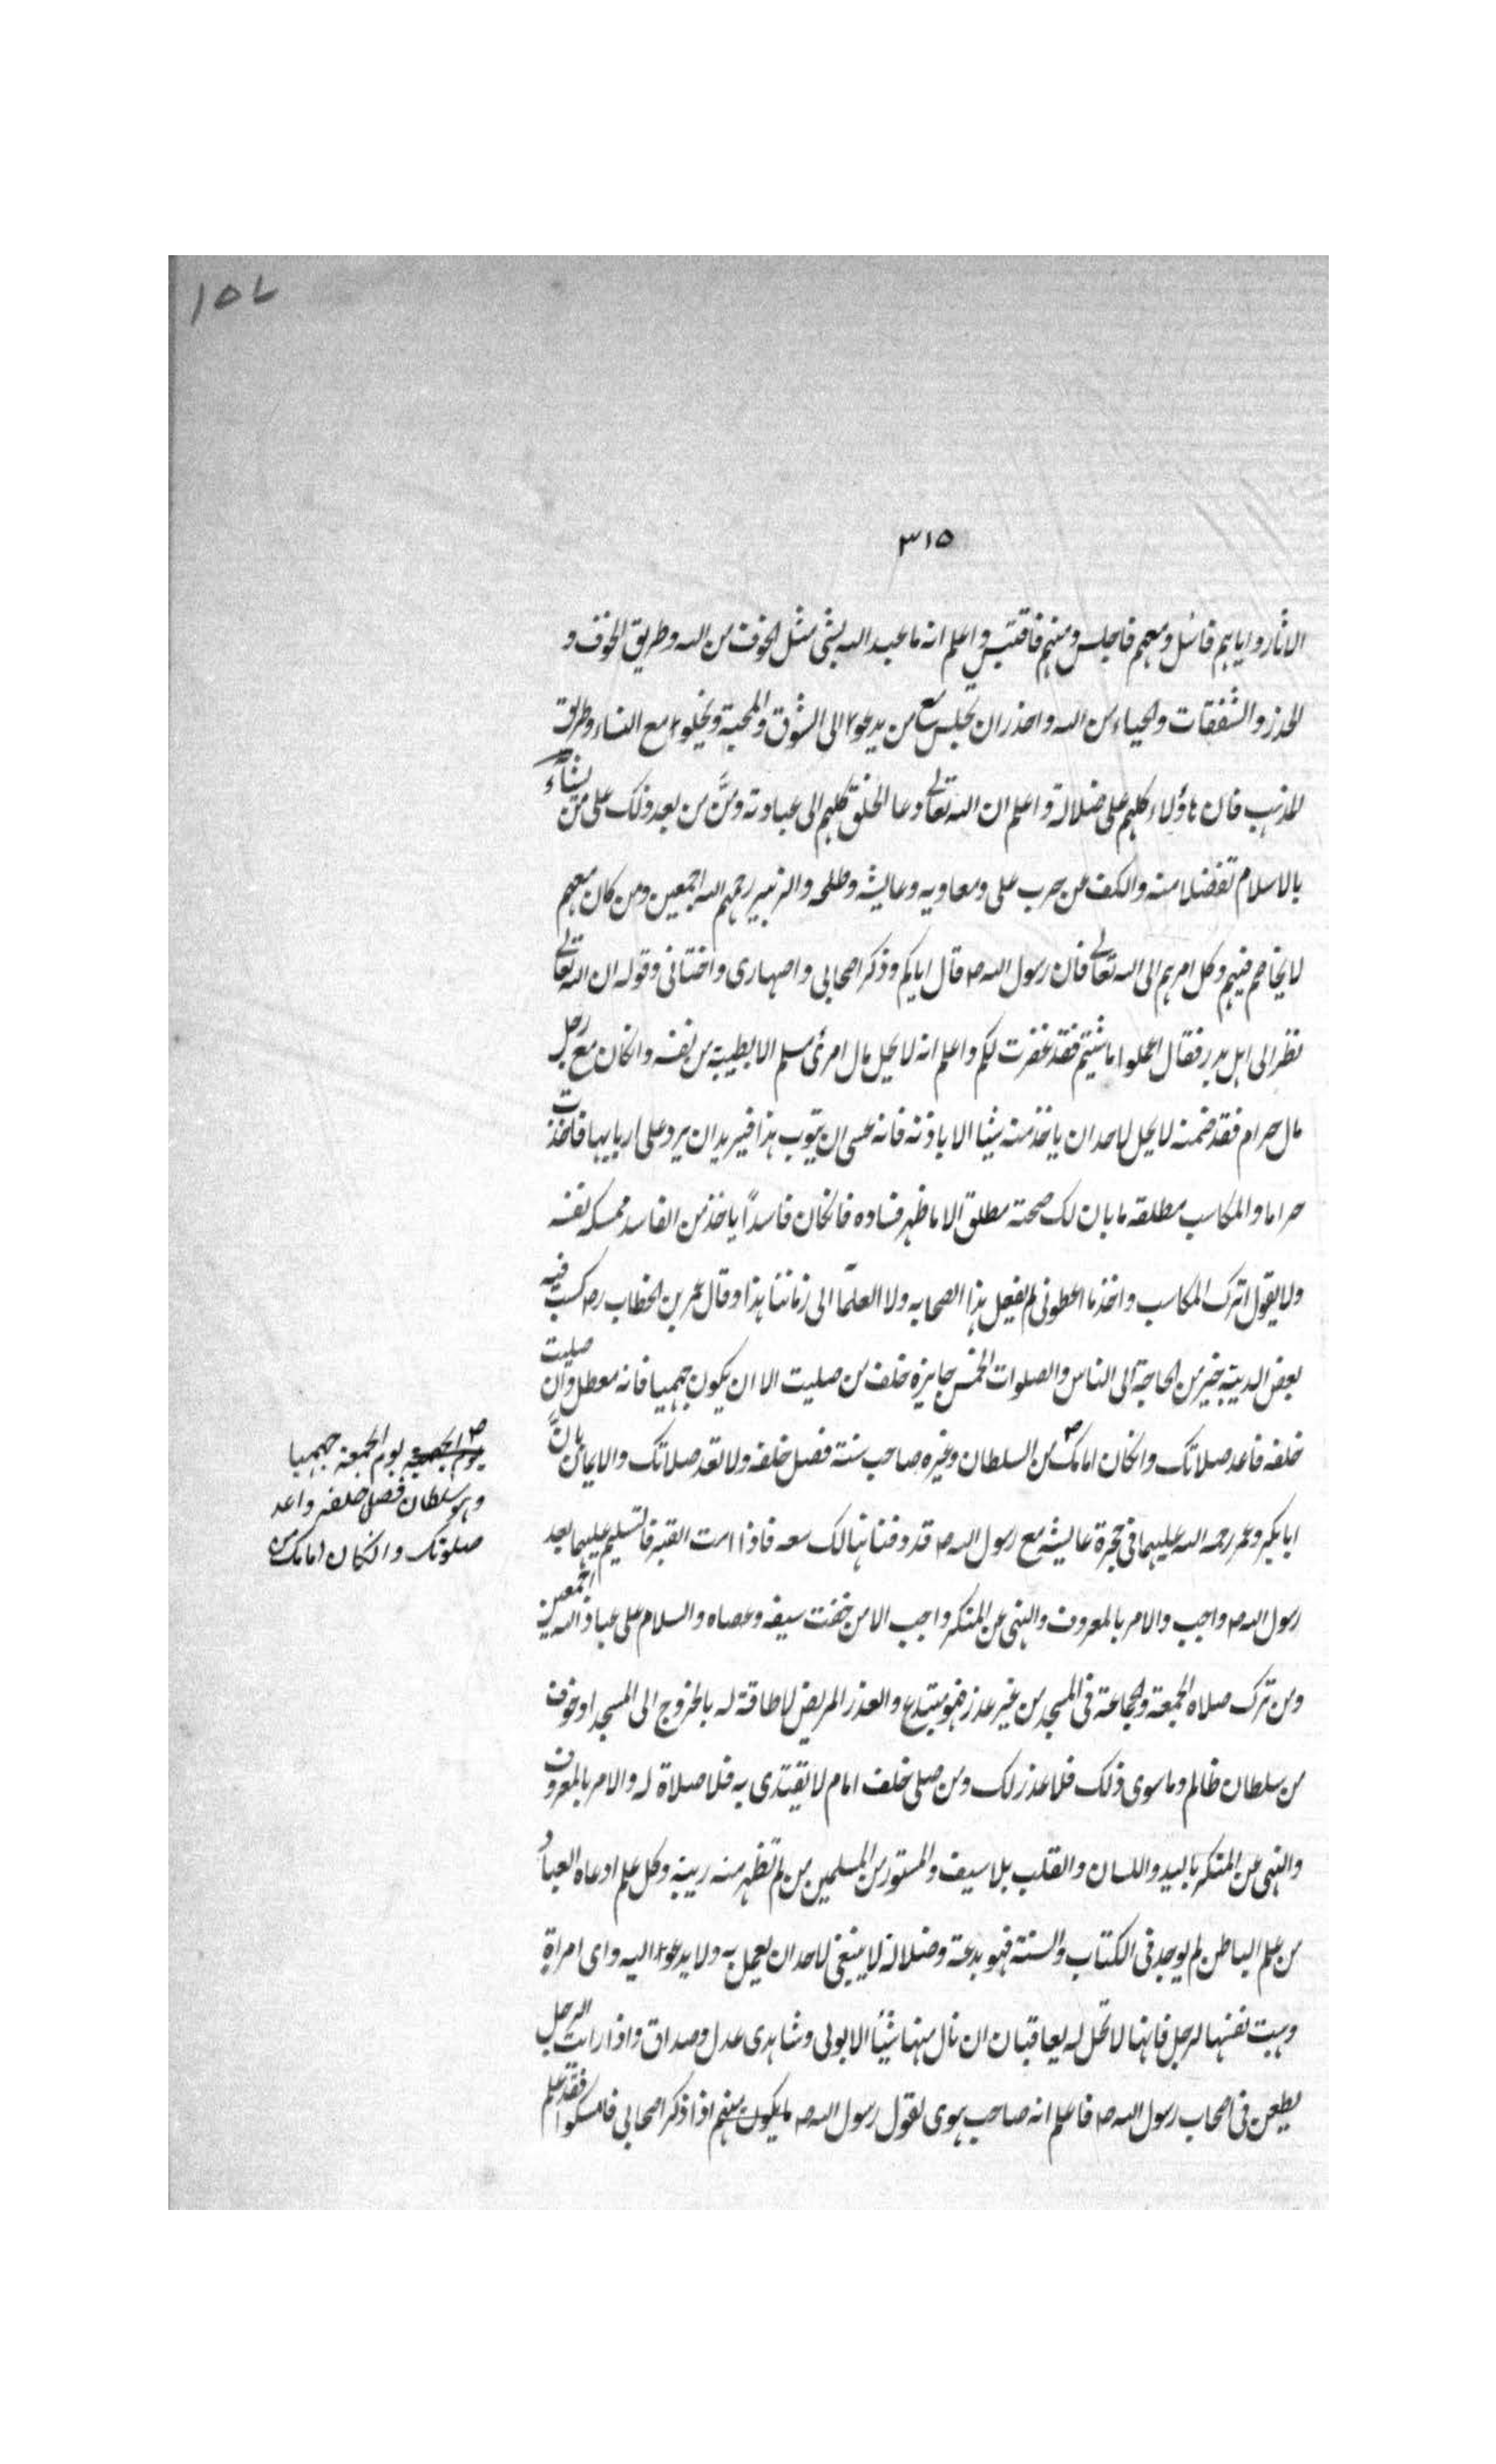 ١٥٧
٣١٥
الاثار واياهم فاسئل ومعهم فاجلس ومنهم فاقتبس واعلم انه ما عبد الله بشئ مثل الخوف من الله وطريق الخوف و
الحذر والشفقات والحياء من الله واحذر ان تجلس مع من يدعوا الى الشوق والمحبة ويخلوا مع النساء وطريق
المذهب فان هاؤلاء كلهم على ضلالة واعلم ان الله تعالى دعا الخلق كلهم الى عبادته ومنَّ من بعد ذلك على من يشآء
بالاسلام تفضلا منه والكف عن حرب على ومعاويه وعايشه وطلحه والزبير رحمهم الله اجمعين ومن كان معهم
لا يخاصم فيهم وكل امرهم الى الله تعالى فان رسول الله ص قال اياكم وذكر اصحابى واصهارى واختانى وقوله ان الله تعالى
نظر الى اهل بدر فقال اعملوا ما شئتم فقد غفرت لكم واعلم انه لا يحل مال امرئ مسلم الا بطيبة من نفسه وانكان مع رجل
مال حرام فقد ضمنه لا يحل لاحد ان ياخذ منه شيئا الا باذنه فانه عسى ان يتوب هذا فيريد ان يرد على اربابها فاخذت
حراما والمكاسب مطلقه ما بان لك صحته مطلق الا ما ظهر فساده فانكان فاسدًا ياخذ من الفاسد ممسكه نفسه
ولا يقول اترك المكاسب واخذ ما اعطونى لم يفعل هذا الصحابه ولا العلمآ الى زماننا هذا وقال عمر بن الخطاب رض كسب فيه
بعض الدنية خير من الحاجة الى الناس والصلوات الخمس جايزة خلف من صليت الا ان يكون جهميا فانه معطل وان صليت
خلفه فاعد صلاتك وانكان امامك ص من السلطان وغيره صاحب سنة فصل خلفه ولا تعد صلاتك والايمان بانَّ
ص يوم الجمعة يوم الجمعة جهميا
وهو سلطان فصل خلفه واعد
صلوتك وانكان امامك من
ابا بكر وعمر رحمه الله عليهما فى حجرة عايشه مع رسول الله ص قد دفنا هنالك معه فاذا اتيت القبر فالتسليم عليهما بعد
رسول الله ص واجب والامر بالمعروف والنهى عن المنكر واجب الا من خفت سيفه وعصاه والسلام على عباد الله اجمعين
ومن ترك صلاه الجمعة والجماعة فى المسجد من غير عذر فهو مبتدع والعذر المريض لا طاقة له بالخروج الى المسجد او خوف
من سلطان ظالم وما سوى ذلك فلا عذر لك ومن صلى خلف امام لا يقتدى به فلا صلاة له والامر بالمعروف
والنهى عن المنكر باليد واللسان والقلب بلا سيف والمستور من المسلمين من لم تظهر منه ريبة وكل علم ادعاه العباد
من علم الباطن لم يوجد فى الكتاب والسنة فهو بدعة وضلالة لا ينبغى لاحد ان يعمل به ولا يدعوا اليه واى امراة
وهبت نفسها لرجل فانها لا تحل له يعاقبان ان نال منها شيئا الا بولى وشاهدى عدل وصداق واذا رايت الرجل
يطعن فى اصحاب رسول الله ص فاعلم انه صاحب هوى لقول رسول الله ص ما يكون منهم اذا ذكر اصحابى فامسكوا فقد علم